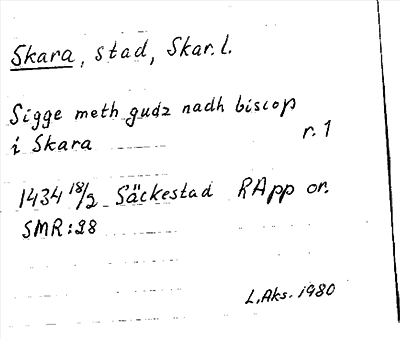 Skara, stad, Skar. l.
Sigge meth gudz nadh biscop
i Skara r. 1
1434 18/2 Säckestad RApp or.
SMR:28
L. Aks. 1980